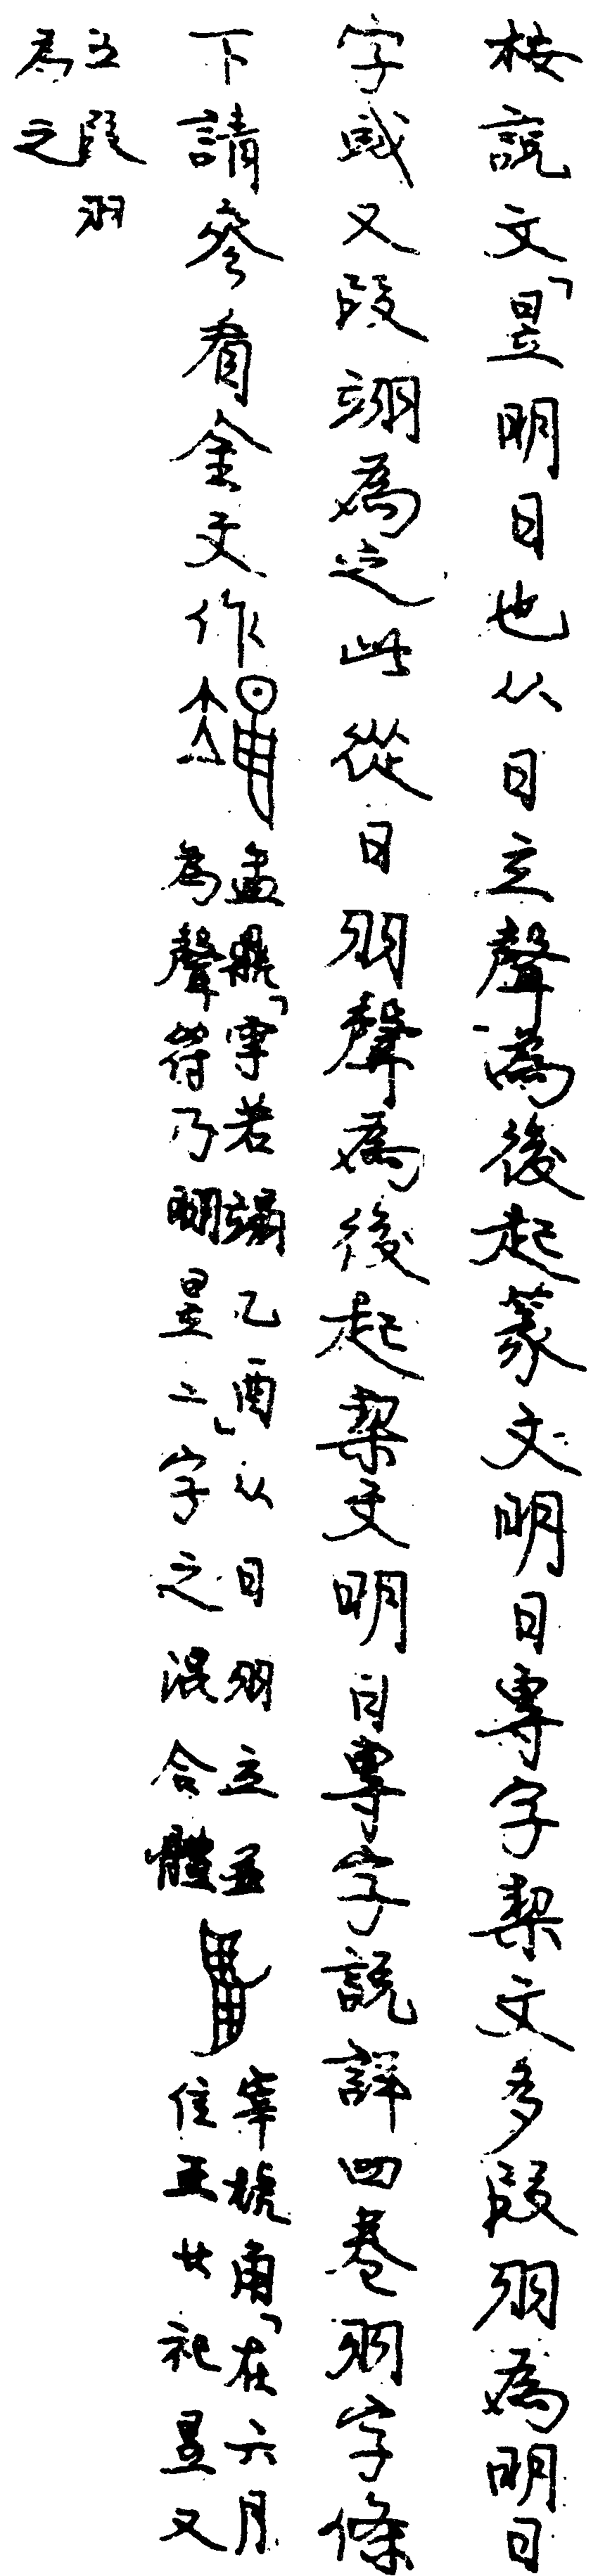 桉說文「昱明日也从日立聲」為後起篆文明日專字栔文多叚羽為明日
字或又叚翊為之此從日羽聲為後起栔文明日專字說詳四卷羽字條
下請參看金文作
盂鼎「雩若乙酉」从日羽立並
為聲符乃昱二字之混合體
宰椃角「在六月
隹王廿祀昱又
五叚羽
為之